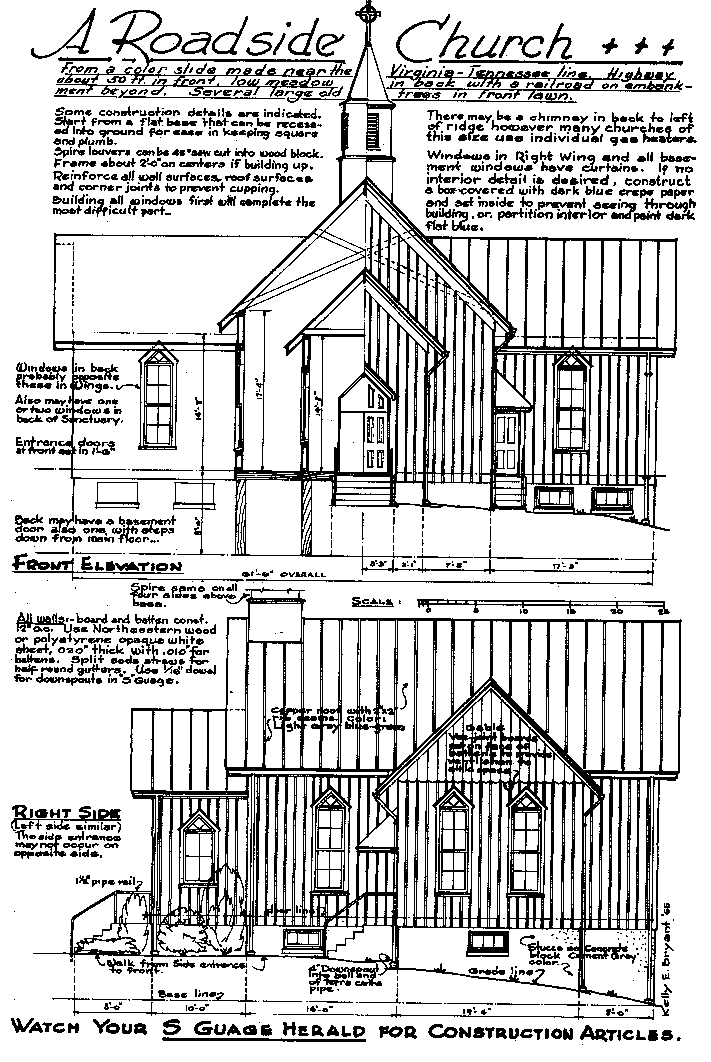 A Roadside Church +++
From a color slide made near the Virginia-Tennessee line. Highway
about 50 ft. in front, low meadow in back with a railroad on embank-
ment beyond. Several large old trees in front lawn.
Some construction details are indicated.
Start from a flat base that can be recess-
ed into ground for ease in keeping square
and plumb.
Spire louvers can be 45° saw cut into wood block.
Frame about 2'-0" on centers if building up.
Reinforce all wall surfaces, roof surfaces
and corner joints to prevent cupping.
Building all windows first will complete the
most difficult part.
There may be a chimney in back to left
of ridge however many churches of
this size use individual gas heaters.
Windows in Right Wing and all base-
ment windows have curtains. If no
interior detail is desired, construct
a box covered with dark blue crepe paper
and set inside to prevent seeing through
building, or, partition interior and paint dark
flat blue.
Windows in back
probably opposite
these in Wings.
Also may have one
or two windows in
back of Sanctuary.
Entrance doors
at front set in 1'-6"
Back may have a basement
door also one with steps
down from main floor...
FRONT ELEVATION
OVERALL
17'-3"
Spire same on all
four sides above
base.
SCALE:
0 5 10 15 20 25
All walls:- board and batten const.
12" o.c. Use Northeastern wood
or polystyrene opaque white
sheet, .020" thick with .010" for
battens. Split soda straws for
half round gutters. Use 1/16" dowel
for downspouts in S Guage.
Copper roof with 2"x2"
seams. Color:
Light grey blue-green
Gable
RIGHT SIDE
(Left side similar)
The side entrance
may not occur on
opposite side.
1½" pipe rail
floor line
Walk from side entrance
to front
4" Downspout
into bell end
of terra cotta
pipe.
Stucco on Concrete
block Cement Grey
color.
Grade line
Base line
10'-0" 16'-0" 19'-4" 8'-0"
Kelly E. Bryant '65
WATCH YOUR S GUAGE HERALD FOR CONSTRUCTION ARTICLES.